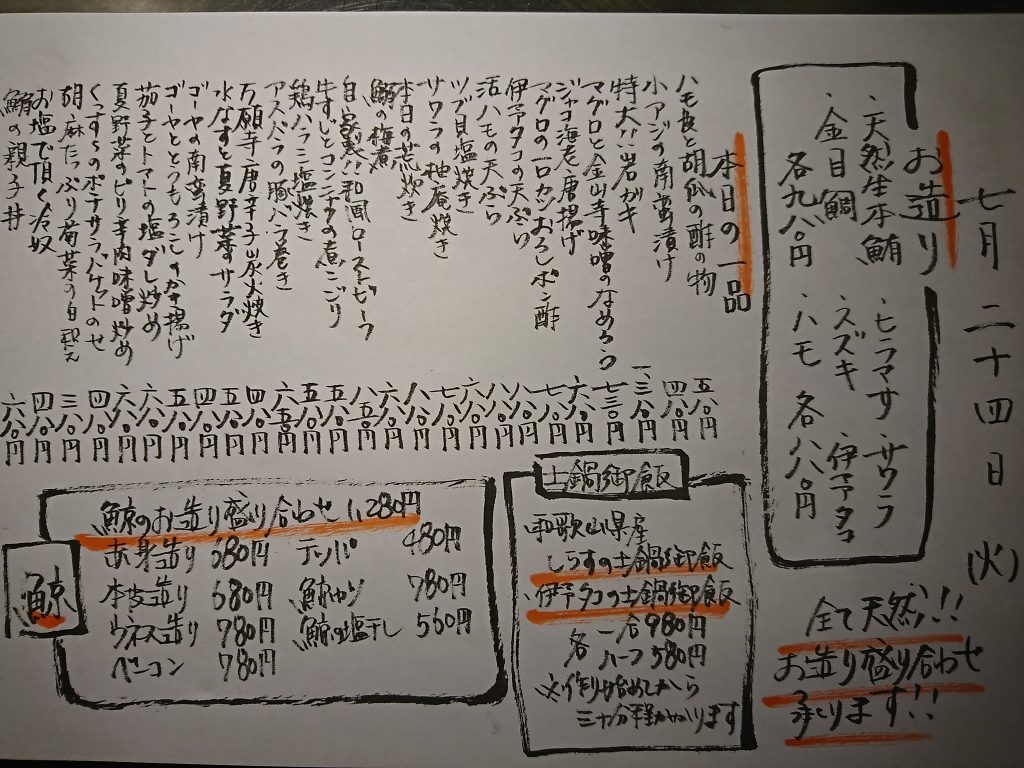 七月二十四日(火)
お造り
・天然生本鮪
・金目鯛
各九八〇円
・ヒラマサ・サワラ
・スズキ・伊予タコ
・ハモ 各八八〇円
全て天然!!
お造り盛り合わせ
承ります!!
本日の一品
ハモ皮と胡瓜の酢の物 五八〇円
小アジの南蛮漬け 四八〇円
特大!!岩ガキ 一三八〇円
マグロと金山寺味噌のなめろう 七三〇円
ジャコ海老唐揚げ 六八〇円
マグロの一口カツおろしポン酢 七八〇円
伊予タコの天ぷら 八八〇円
活ハモの天ぷら 八八〇円
ツブ貝塩焼き 六八〇円
サワラの柚庵焼き 七八〇円
本日の荒炊き 八八〇円
自家製!!和風ローストビーフ 八五〇円
牛すじとコンニャクの煮こごり 五八〇円
鶏ハラミ塩焼き 五八〇円
アスパラの豚バラ巻き 六五〇円
万願寺唐辛子炭火焼き 四八〇円
水なすと夏野菜のサラダ 五八〇円
ゴーヤの南蛮漬け 四八〇円
ゴーヤととうもろこしのかき揚げ 五八〇円
茄子とトマトの塩ダレ炒め 六八〇円
夏野菜のピリ辛肉味噌炒め 六八〇円
くずし のポテサラバケットのせ 四八〇円
胡麻たっぷり菊菜の白和え 三八〇円
お塩で頂く冷奴 四八〇円
鮪の親子丼 六八〇円
土鍋御飯
・和歌山県産
しらすの土鍋御飯
・伊予タコの土鍋御飯
各 一合980円
ハーフ580円
※作り始めてから
三十分程かかります
鯨
鯨のお造り盛り合わせ 1,280円
赤身造り 680円
本皮造り 680円
ウネス造り 780円
ベーコン 780円
テッパ 480円
鯨カツ 780円
鯨の塩干し 560円